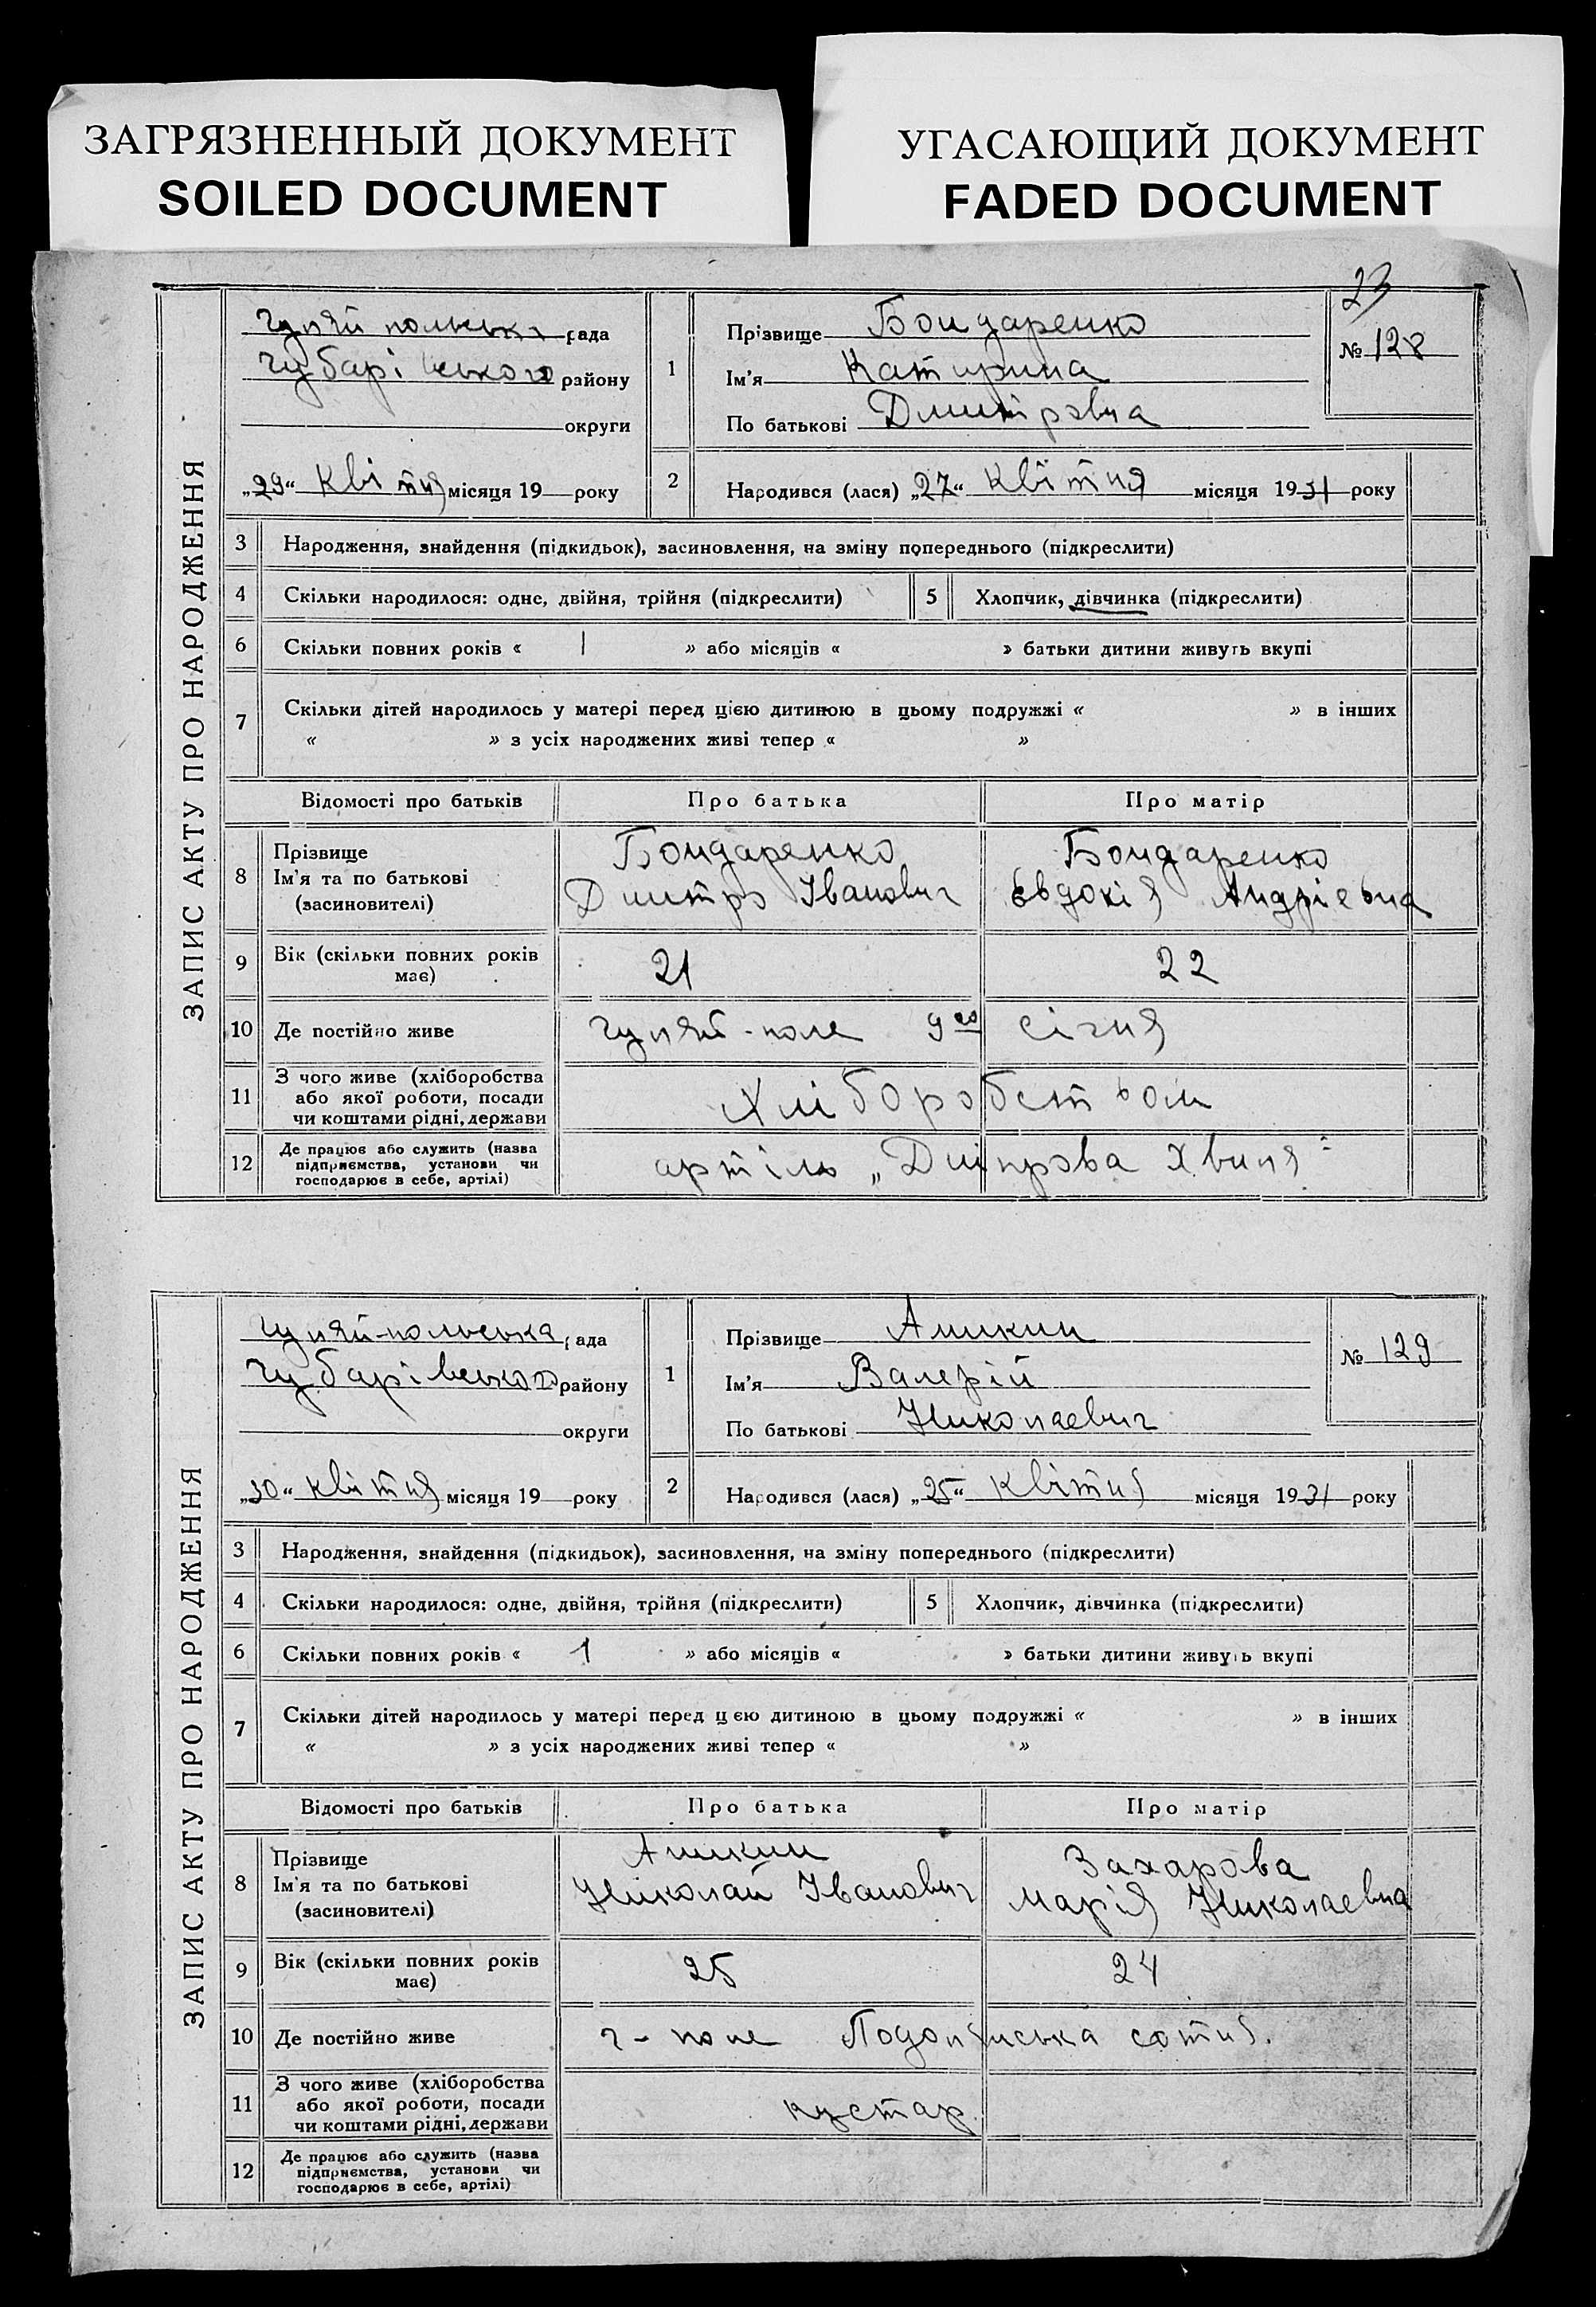 ЗАГРЯЗНЕННЫЙ ДОКУМЕНТ
SOILED DOCUMENT
УГАСАЮЩИЙ ДОКУМЕНТ
FADED DOCUMENT
23
ЗАПИС АКТУ ПРО НАРОДЖЕННЯ
Гуляй польська рада
Чубарівського району
округи
„29“ Квітня місяця 19 року
1 Прізвище Бондаренко
Ім'я Катирина
По батькові Дмитровна
№ 128
2 Народився (лася) „27“ Квітня місяця 1931 року
3 Народження, знайдення (підкидьок), засиновлення, на зміну попереднього (підкреслити)
4 Скільки народилося: одне, двійня, трійня (підкреслити) 5 Хлопчик, дівчинка (підкреслити)
6 Скільки повних років « 1 » або місяців « » батьки дитини живуть вкупі
7 Скільки дітей народилось у матері перед цією дитиною в цьому подружжі « » в інших
« » з усіх народжених живі тепер « »
Відомості про батьків Про батька Про матір
8 Прізвище
Ім'я та по батькові
(засиновителі)
Бондаренко
Дмитро Іванович
Бондаренко
Євдокія Андріевна
9 Вік (скільки повних років
має)
21 22
10 Де постійно живе Гуляй-поле 9го січня
11 З чого живе (хліборобства
або якої роботи, посади
чи коштами рідні, держави
Хліборобством
12 Де працює або служить (назва
підприємства, установи чи
господарює в себе, артілі)
артіль „Дніпрова Хвиля“
ЗАПИС АКТУ ПРО НАРОДЖЕННЯ
Гуляй-польська рада
Чубарівського району
округи
„30“ квітня місяця 19 року
1 Прізвище Аникин
Ім'я Валерій
По батькові Николаевич
№ 129
2 Народився (лася) „25“ квітня місяця 1931 року
3 Народження, знайдення (підкидьок), засиновлення, на зміну попереднього (підкреслити)
4 Скільки народилося: одне, двійня, трійня (підкреслити) 5 Хлопчик, дівчинка (підкреслити)
6 Скільки повних років « 1 » або місяців « » батьки дитини живуть вкупі
7 Скільки дітей народилось у матері перед цією дитиною в цьому подружжі « » в інших
« » з усіх народжених живі тепер « »
Відомості про батьків Про батька Про матір
8 Прізвище
Ім'я та по батькові
(засиновителі)
Аникин
Николай Іванович
Захарова
Марія Николаевна
9 Вік (скільки повних років
має)
25 24
10 Де постійно живе г-поле Подолянська сотня.
11 З чого живе (хліборобства
або якої роботи, посади
чи коштами рідні, держави
кустар.
12 Де працює або служить (назва
підприємства, установи чи
господарює в себе, артілі)